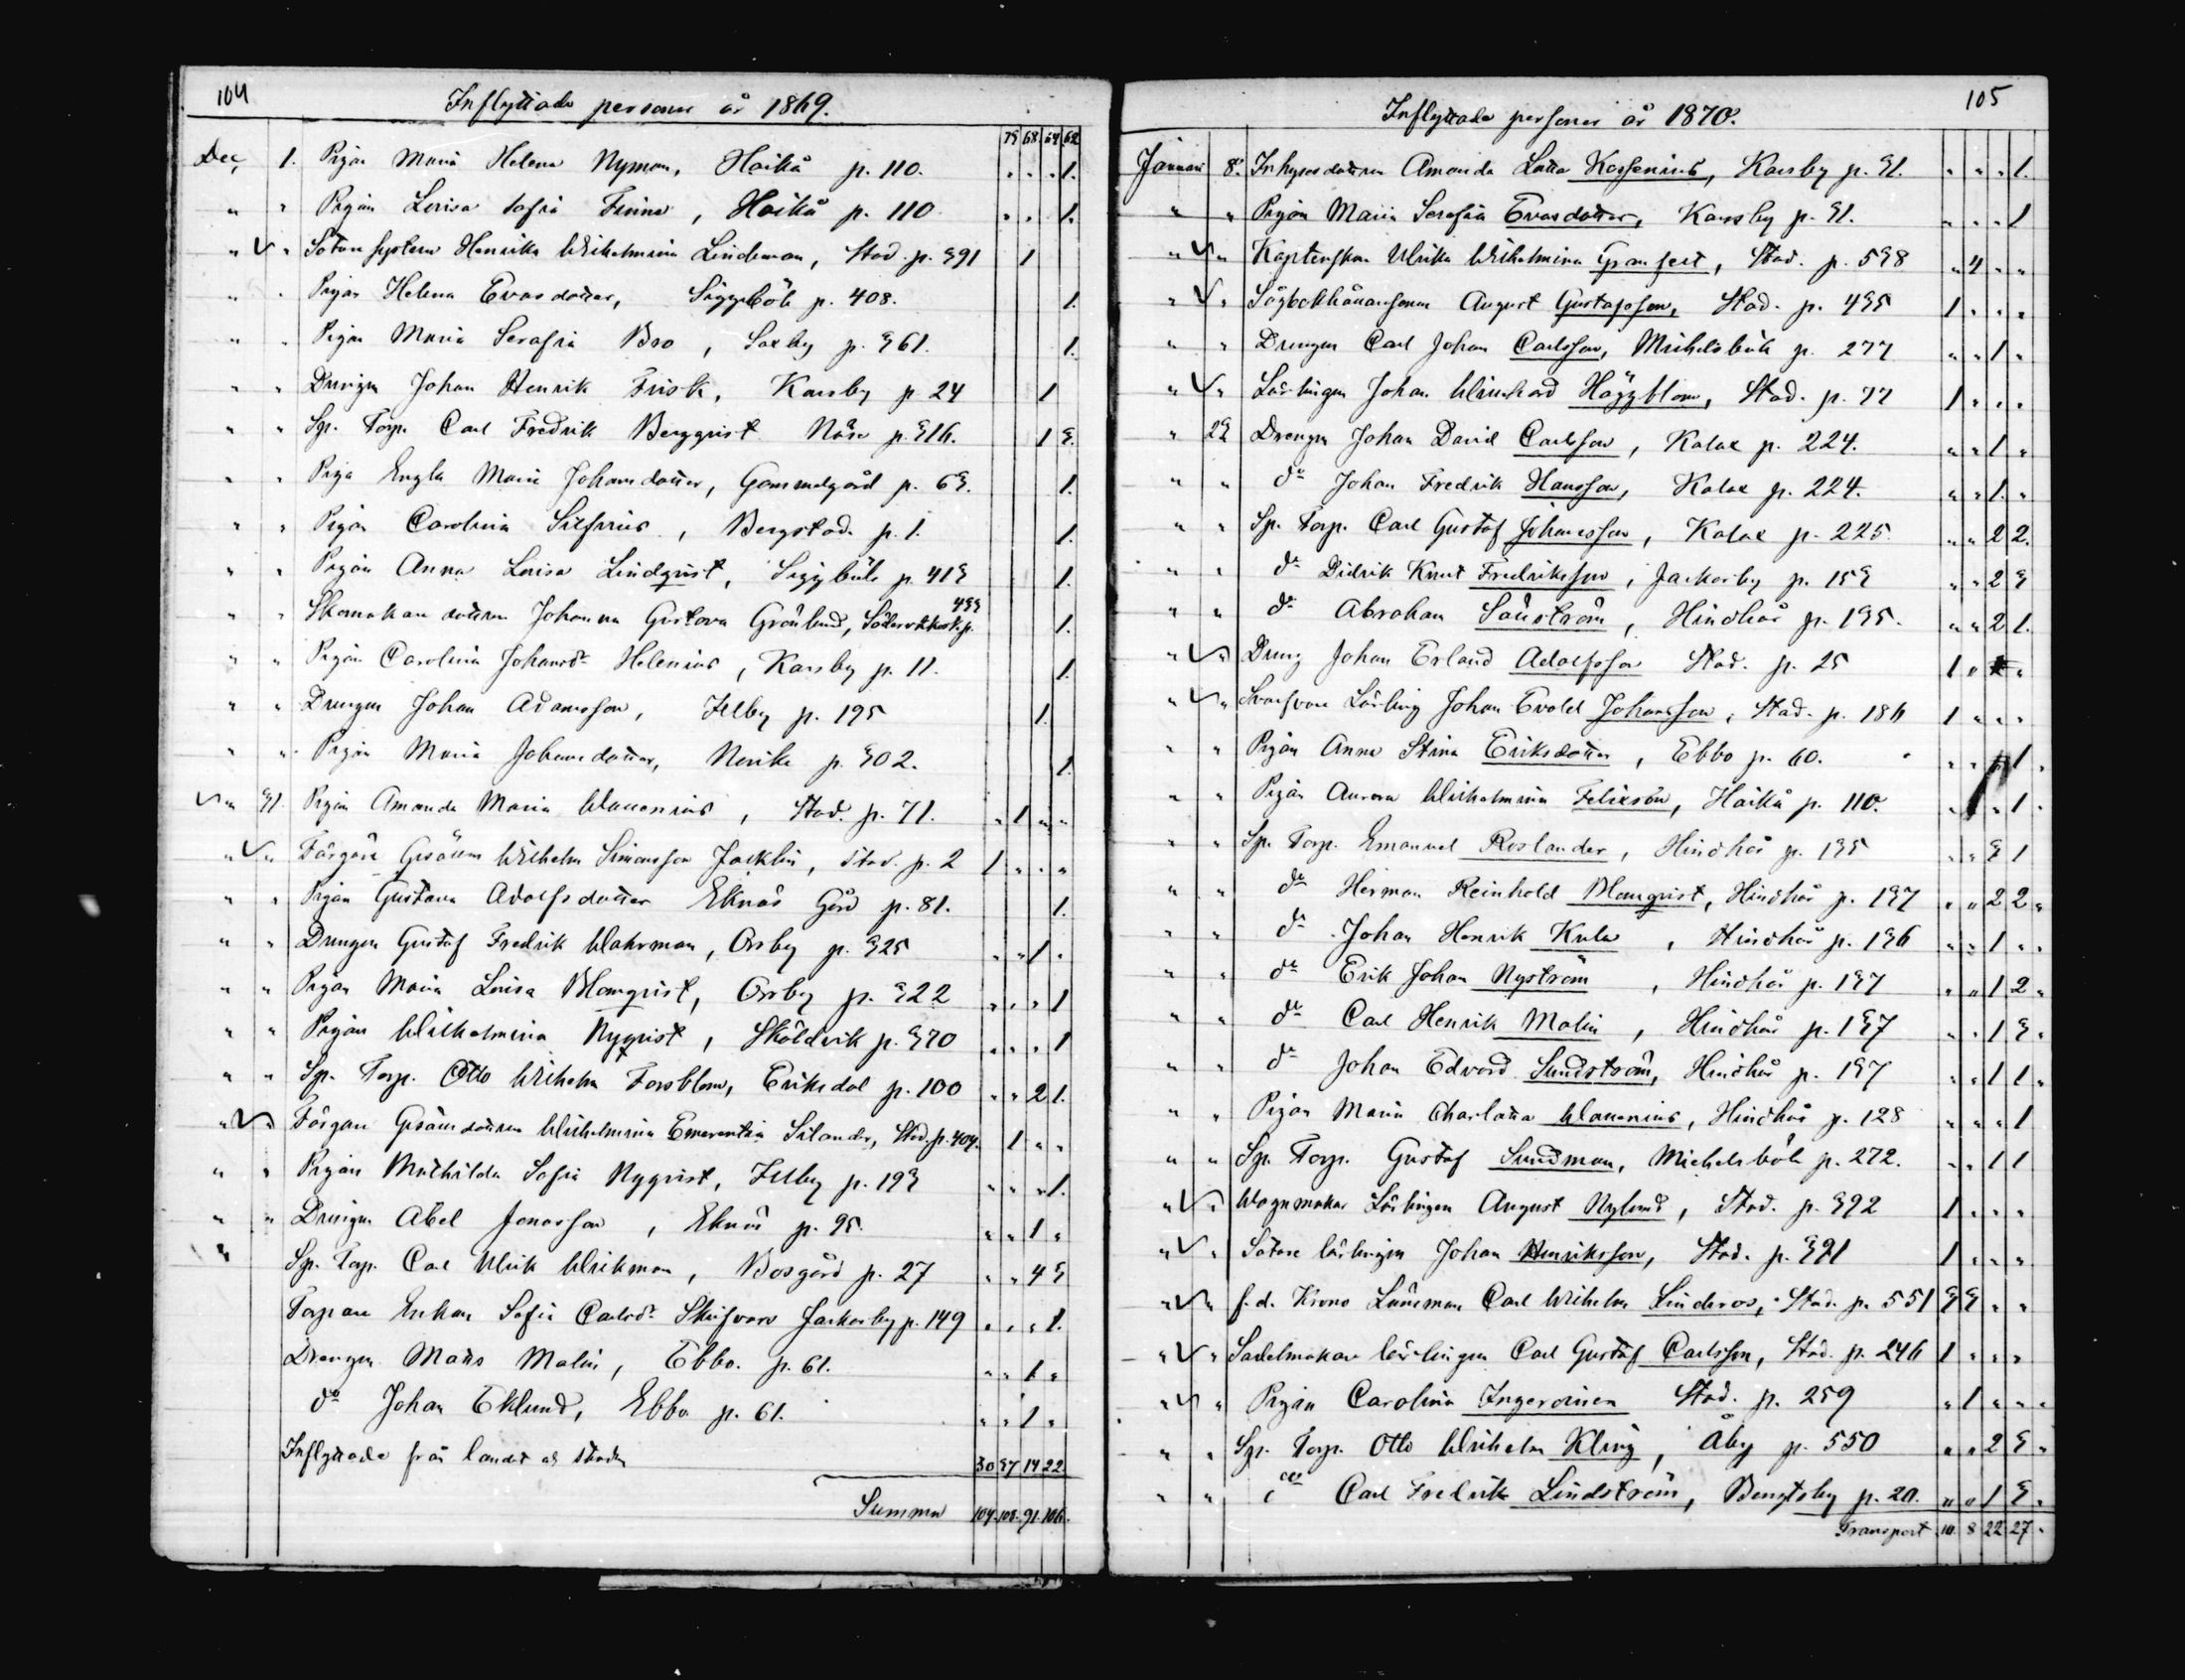 104
Inflyttade personer år 1869.
79 68 64 62
Dec, 1. Pigan Maria Helena Nyman, Haikå p. 110. " " " 1.
" " Pigan Lovisa Sofia Finne, Haikå p. 110 " " 1.
" √ " Sotare Henrika Wilhelmina Lindeman, Stad. p. 391 1
" " Pigan Helena Evasdotter, Siggböle p. 408. 1.
" " Pigan Maria Serafia Bro, Saxby p. 361. 1.
" " Drengen Johan Henrik Frisk, Karsby p 24 1
" " Sp. Torp. Carl Fredrik Bergqvist Näse p. 316. 1 3.
" " Piga Engla Maria Johansdotter, Gammelgård p. 63. 1.
" " Pigan Carolina Silfvius, Bergstad. p. 1. 1.
" " Pigan Anna Lovisa Lindqvist, Siggböle p 413 1.
" " Skomakare dottren Johanna Gustava Grönlund, p. 433 1.
" " Pigan Carolina Johansdr Helenius, Karsby p. 11. 1.
" " Drengen Johan Adamsson, Illby p. 195 1.
" " Pigan Maria Johansdotter, Nevike p. 302. 1.
√ " 31. Pigan Amanda Maria Wauenius, Stad. p. 71. " 1 " "
" √ " Färgare Gesällen Wilhelm Simonsson Jacklin, Stad. p. 2 1 " " "
" " Pigan Gustava Adolfsdotter Eknäs Gård p. 81. 1.
" " Drengen Gustaf Fredrik Wahrman, Orrby p. 325 " " 1 "
" " Pigan Maria Lovisa Blomqvist, Orrby p. 322 " " " 1
" " Pigan Wilhelmina Nyqvist, Sköldvik p. 370 " " " 1
" " Sp. Torp. Otto Wilhelm Forsblom, Eriksdal p. 100 " " 2 1.
" √ " Färgare Gesälldottren Wilhelmina Emerentia Silander, Stad. p. 404. 1 " "
" " Pigan Mathilda Sofia Nyqvist, Illby p. 193 " " " 1.
" " Drengen Abel Jonasson, Eknäs p. 95. " " 1 "
" Sp. Torp. Carl Ulrik Wikman, Bosgård p. 27 " " 4 3
Torpare Enkan Sofia Carlsdr Jackarby p. 149 " " " 1.
Drengen Matts Malin, Ebbo. p. 61. " " 1 "
do Johan Eklund, Ebbo p. 61. " " 1 "
Inflyttade från landet och staden 30 37 14 22
Summa 104. 108. 91. 106.
105
Inflyttade personer år 1870.
Januari 8. Inhyses dottren Amanda Lotta Kossenius, Karsby p. 31. " " " 1.
" " Pigan Maria Serafia Evasdotter, Karsby p. 31. " " " 1
" √ " Kaptenskan Ulrika Wilhelmina Granfelt, Stad. p. 538 " 4 " "
" √ " August Gustafsson, Stad. p. 435 1 " " "
" " Drengen Carl Johan Carlsson, Michelsböle p. 277 " " 1 "
" √ " Lärlingen Johan Häggblom, Stad. p. 77 1 " " "
" 22 Drengen Johan David Carlsson, Kalax p. 224. " " 1 "
" " do Johan Fredrik Hansson, Kalax p. 224. " " 1. "
" " Sp. Torp. Carl Gustaf Johansson, Kalax p. 225. " " 2 2.
" " do Didrik Knut Fredriksson, Jackarby p. 153 " " 2 3
" " do Abraham Sauström, Hindhår p. 135. " " 2 1.
" √ " Dreng Johan Erland Adolfsson Stad. p. 25 1 " "
" √ " Svarfvare Lärling Johan Evald Johansson, Stad. p. 186 1 " " "
" " Pigan Anna Stina Eriksdotter, Ebbo p. 60. " " 1 "
" " Pigan Aurora Wilhelmina Felixson, Haikå p. 110. " " 1 "
" " Sp. Torp. Emanuel Roslander, Hindhår p. 135 " " 3 1
" " do Herman Reinhold Blomqvist, Hindhår p. 137 " " 2 2 "
" " do Johan Henrik Kula, Hindhår p. 136 " " 1 " "
" " do Erik Johan Nyström, Hindhår p. 137 " " 1 2 "
" " do Carl Henrik Malin, Hindhår p. 137 " " 1 3 "
" " do Johan Edvard Sundström, Hindhår p. 137 " " 1 1 "
" " Pigan Maria Charlotta Wauenius, Hindhår p. 128 " " " 1
" " Sp. Torp. Gustaf Sundman, Michelsböle p. 272. " " 1 1
" √ " Wagnmakar Lärlingen August Nylund, Stad. p. 392 1 " " "
" √ " Sotare lärlingen Johan Henriksson, Stad. p. 391 1 " " "
" √ " f.d. Krono Länsman Carl Wilhelm Linderos, Stad. p. 551 3 3 " "
" √ " Sadelmakare lärlingen Carl Gustaf Carlsson, Stad. p. 246 1 " " "
" √ " Pigan Carolina Ingeroinen Stad. p. 259 " 1 " " "
" " Sp. Torp. Otto Wilhelm Kling, Åby p. 550 " " 2 3 "
" " do Carl Fredrik Lindström, Bengtsby p. 20. " " 1 3 "
Transport 10. 8 22 27 "